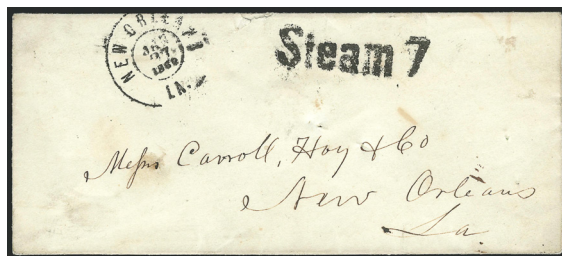 NEW ORLEANS
JAN
27
1862
LA.
Steam 7
Messrs Carroll, Hoy & Co
New Orleans
La